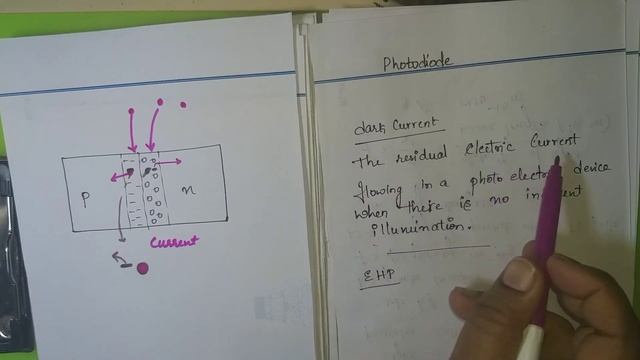 Photodiode
dark Current
The residual Electric Current
flowing in a photo elect device
when there is no in ent
illumination.
EHP
P
n
Current